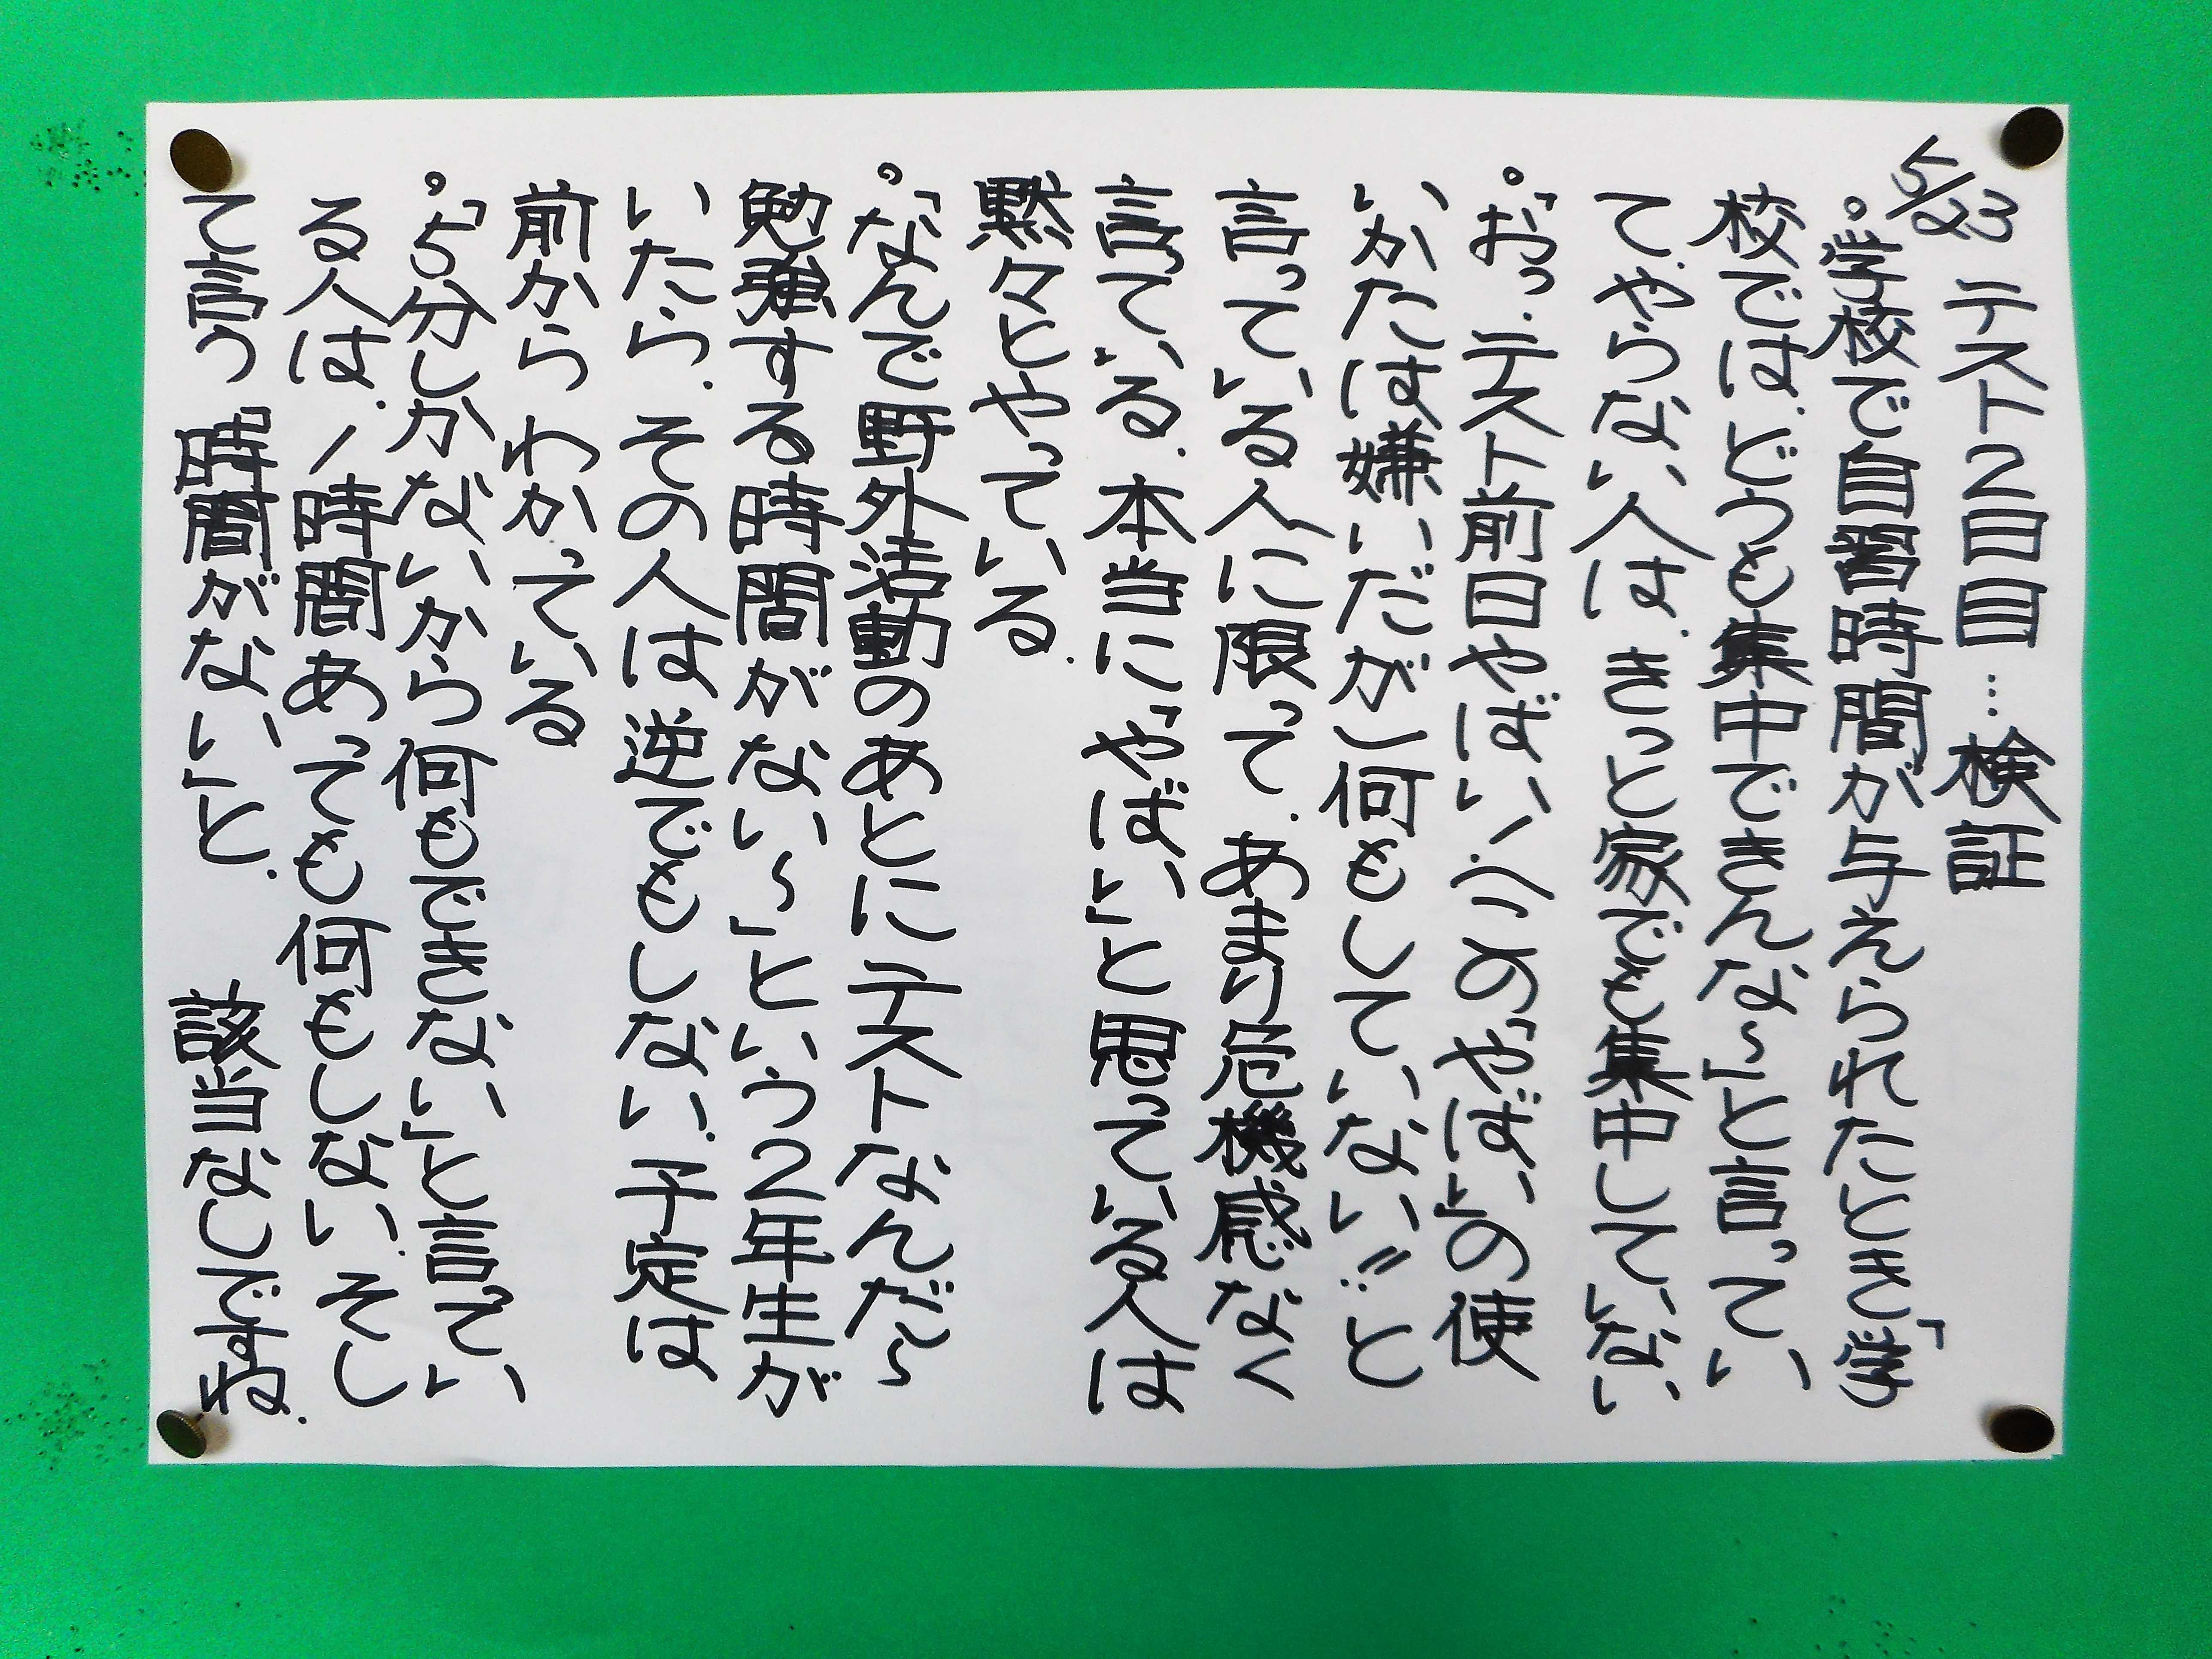 5/23 テスト2日目…検証
。学校で自習時間が与えられたとき「学
校では、どうも集中できんな～」と言ってい
て、やらない人は、きっと家でも集中していない
。「おっ、テスト前日やばい！（この「やばい」の使
いかたは嫌いだが）何もしていない!!」と
言っている人に限って、あまり危機感なく
言っている。本当に「やばい」と思っている人は
黙々とやっている。
。「なんで野外活動のあとにテストなんだ～
勉強する時間がない～」という2年生が
いたら、その人は逆でもしない。予定は
前からわかっている
。「5分しかないから何もできない」と言ってい
る人は、1時間あっても何もしない。そし
て言う「時間がない」と。　該当なしですね。